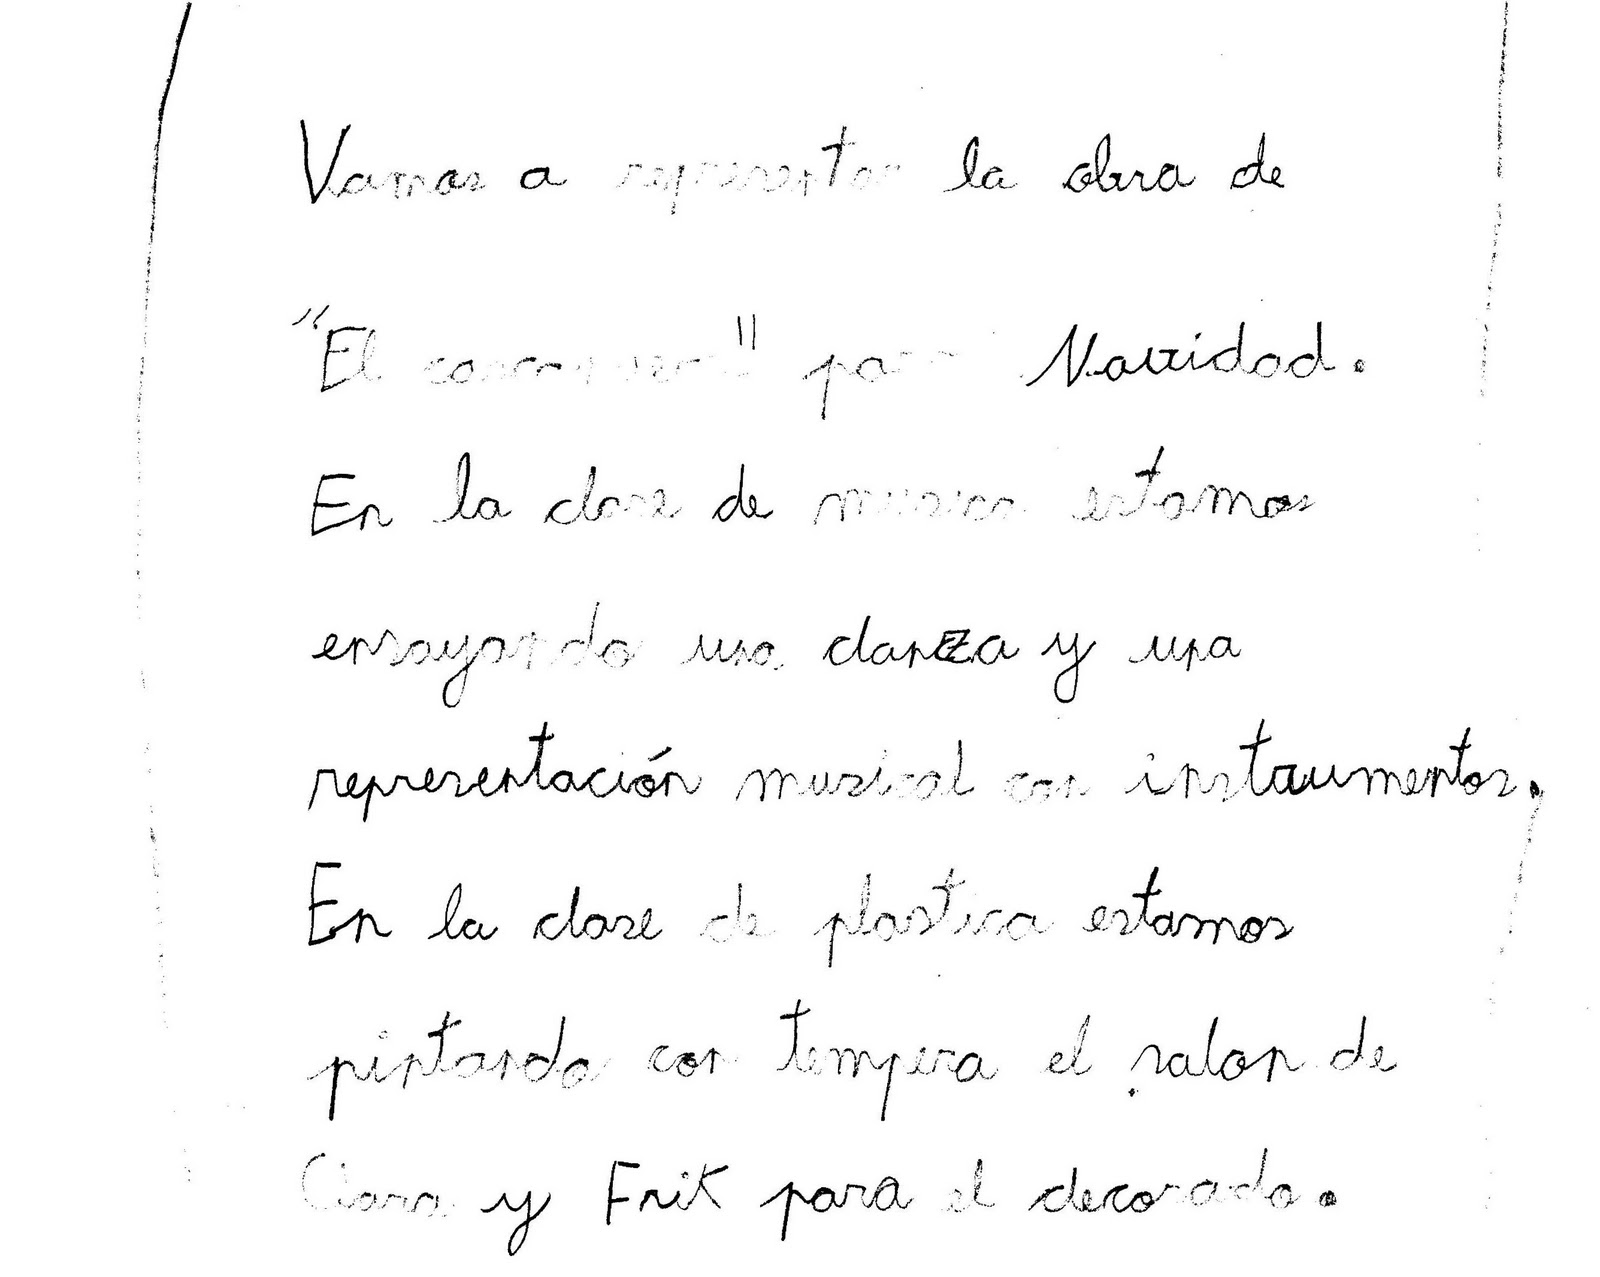 Vamos a representar la obra de
"El cascanueces" para Navidad.
En la clase de musica estamos
ensayando una danza y una
representación musical con instrumentos.
En la clase de plastica estamos
pintando con tempera el salon de
Clara y Frit para el decorado.